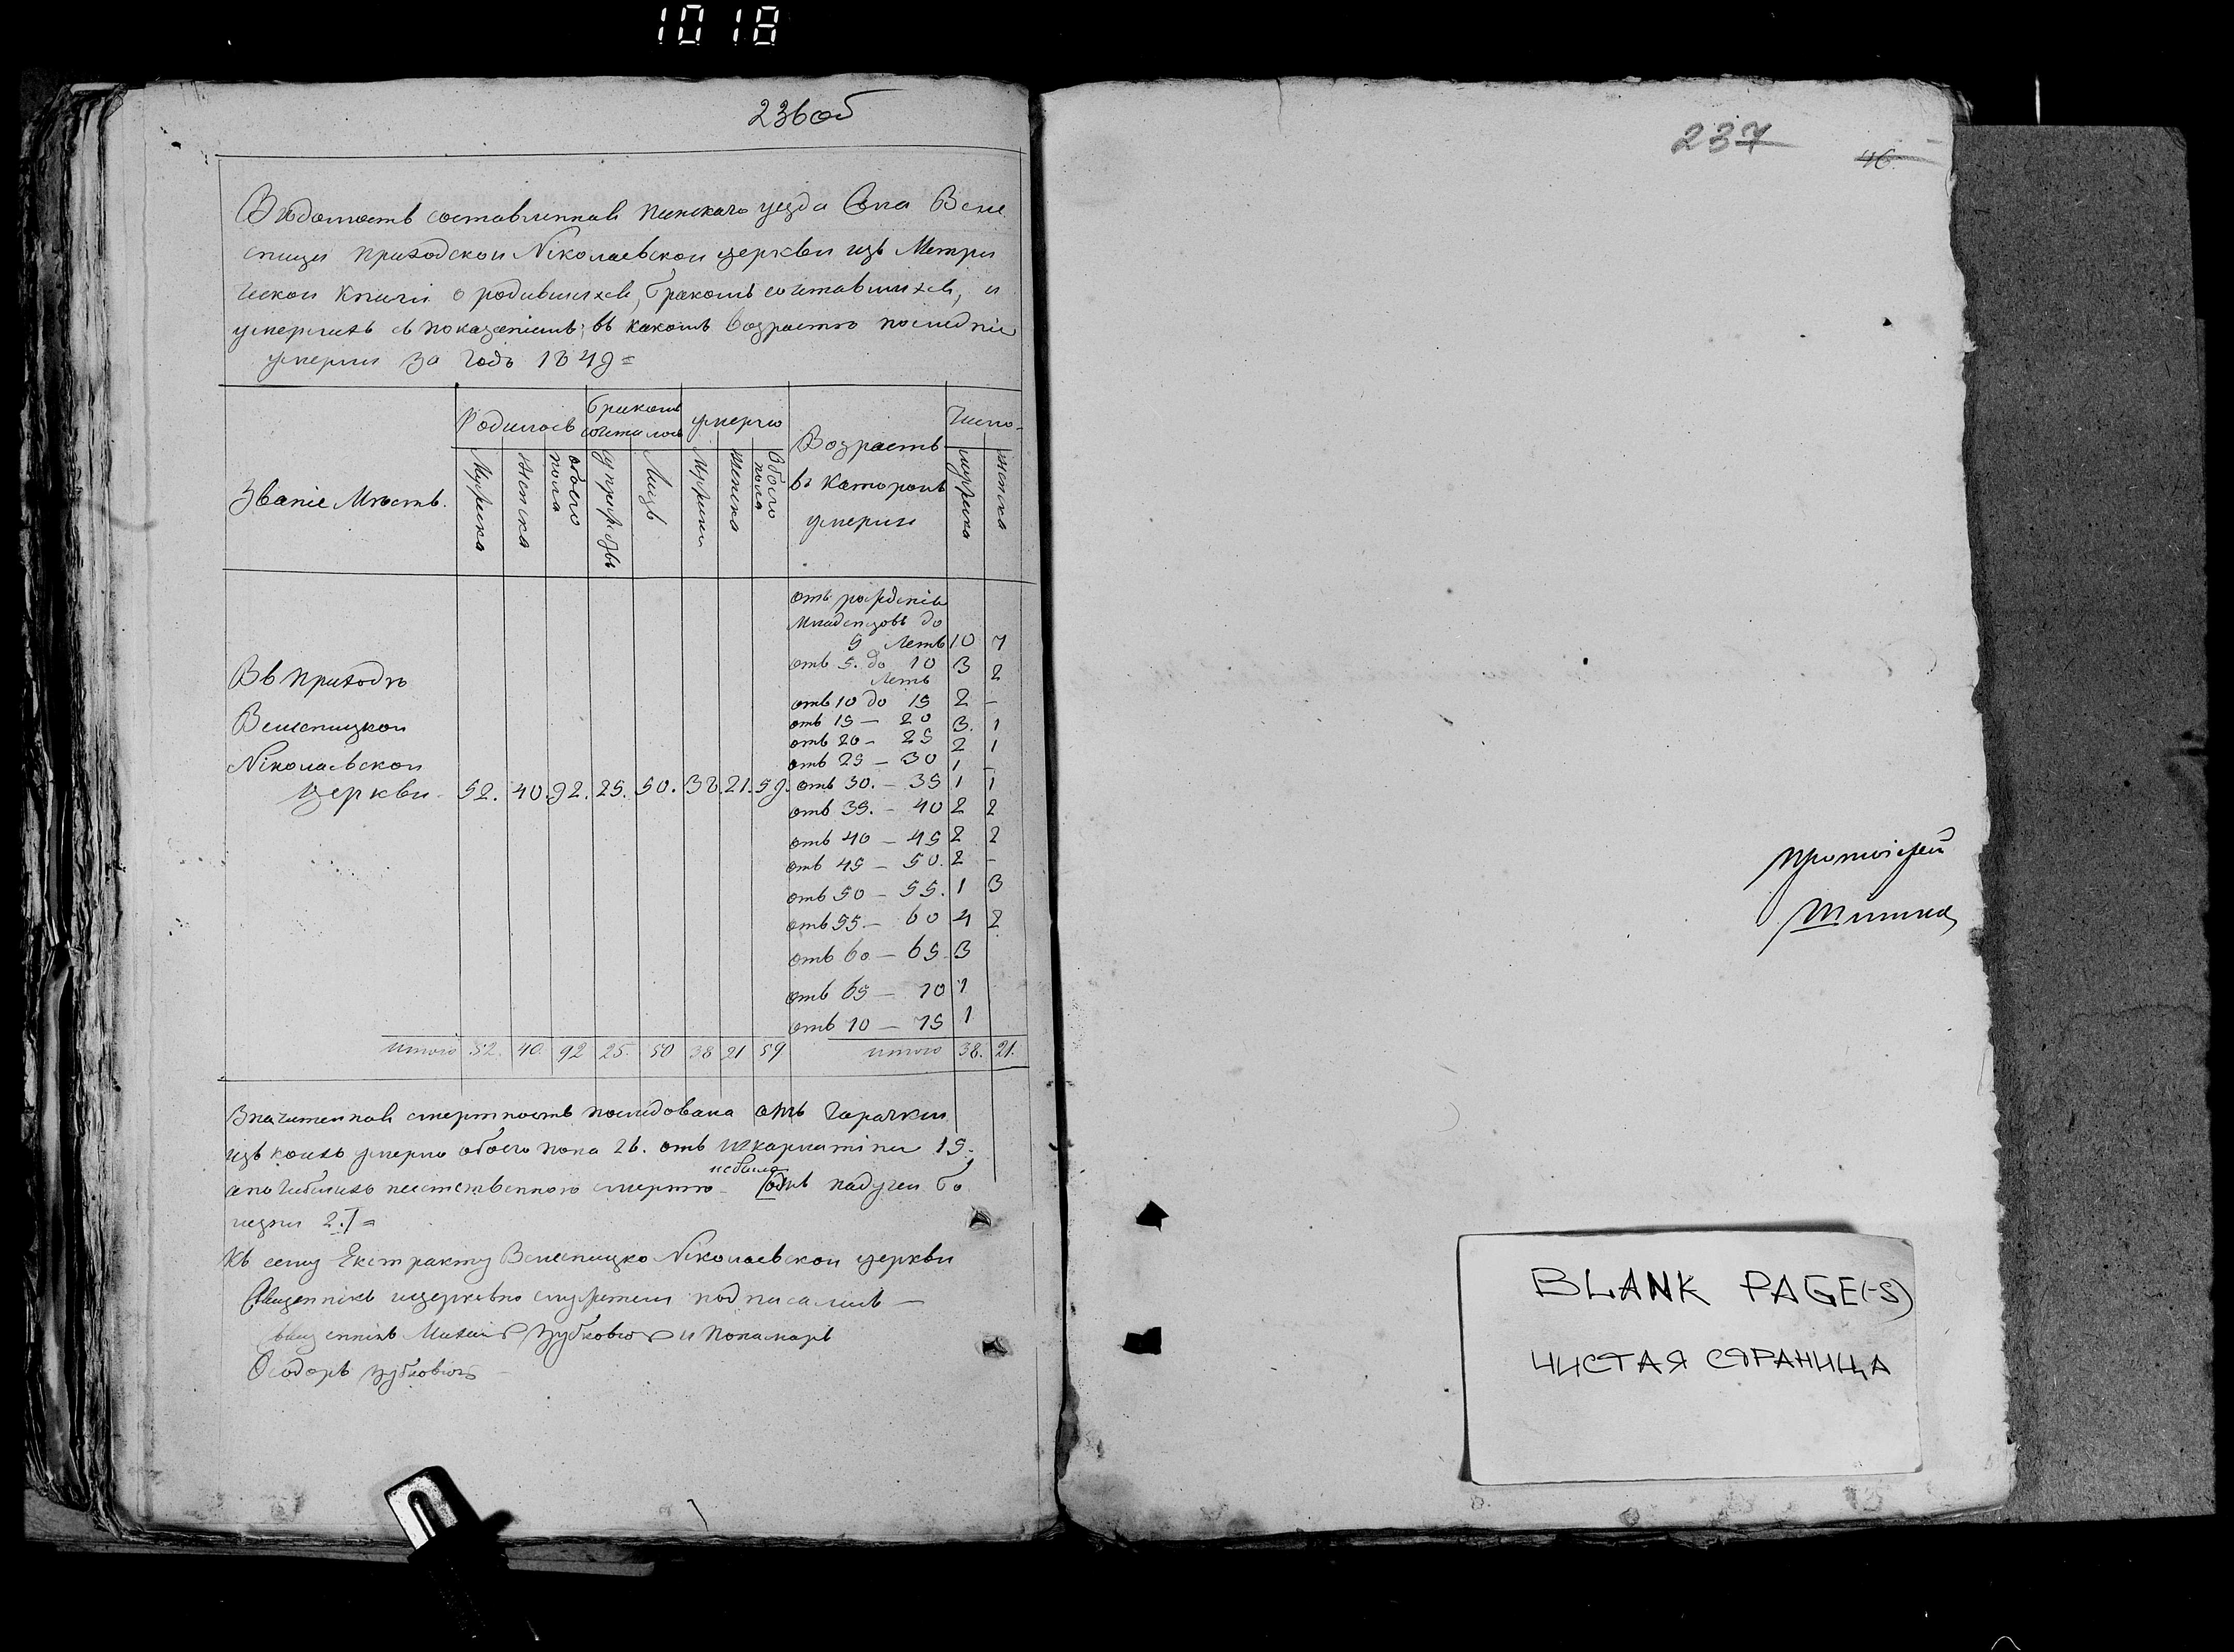 1018
236об
Вѣдомость составленная Пинскаго уезда Села Веле
сницы приходской Nіколаевской церкви изъ Метри
ческой Книги о родившихся, бракомъ сочтавшихся, и
умершихъ съ показаніемъ, въ какомъ возрасте последніе
умерли За годъ 1849=
Званіе Местъ.
Родилось
бракомъ сочталось
умерло
Возрастъ въ Каторомъ умерли
Число
Мужеска
Женска
обоего пола
супружествъ
Лицъ
Мужески
Женска
Обоего пола
мужеска
женска
Въ приходе
Велесницкой
Nіколаевской
Церкви 52. 40. 92. 25. 50. 38. 21. 59.
отъ рожденія
Младенцовъ до
5 Летъ 10 7
отъ 5. до 10 3 2
Летъ
отъ 10 до 15 2 –
отъ 15 – 20 3. 1
отъ 20 – 25 2 1
отъ 25 – 30 1 –
отъ 30. – 35 1 1
отъ 35. – 40 2 2
отъ 40 – 45 2 2
отъ 45 – 50. 2 –
отъ 50 – 55. 1 3
отъ 55 – 60 4 2
отъ 60 – 65. 3
отъ 65 – 70 1
отъ 70 – 75 1
итого 52. 40. 92 25. 50 38 21 59 итого 38. 21.
Значителная смертность последовала отъ Горячки
изъ коихъ умерло обоего пола 26. отъ шкарлатіны 15.
небыло
а погибшихъ неестственною смертю – отъ падучей бо
лезни 2.
Къ сему Екстракту Велесницко Nіколаевской церкви
Священникъ ицерковно служители подписались –
священникъ Михаилъ Зубковичъ и Пономарь
Феодоръ Зубковичъ
237
46
протоіерей
BLANK PAGE(-S)
ЧИСТАЯ СТРАНИЦА